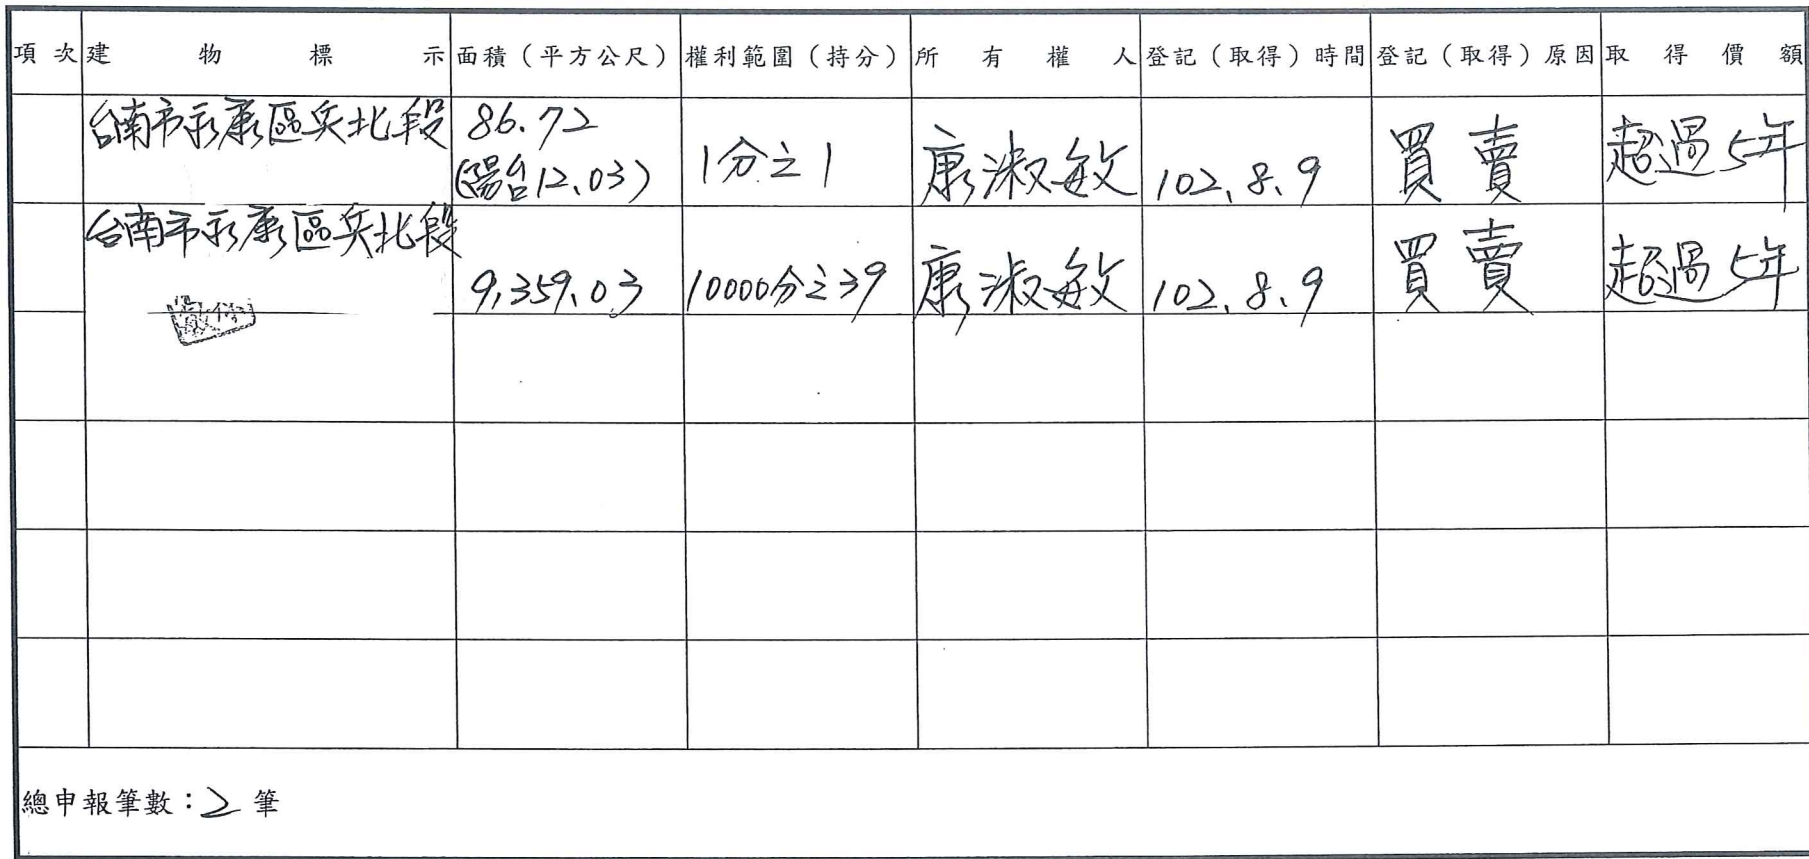 項次 建物標示 面積（平方公尺） 權利範圍（持分） 所有權人 登記（取得）時間 登記（取得）原因 取得價額
台南市永康區兵北段 86.72 (陽台12.03) 1分之1 康淑敏 102.8.9 買賣 超過5年
台南市永康區兵北段 9,359.03 10000分之39 康淑敏 102.8.9 買賣 超過5年
總申報筆數：2 筆